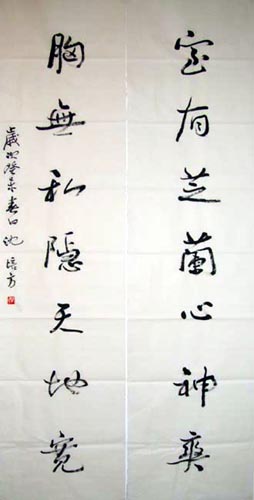 室有芝蘭心神爽
胸無私隱天地寬
歲次癸未春日沈培方